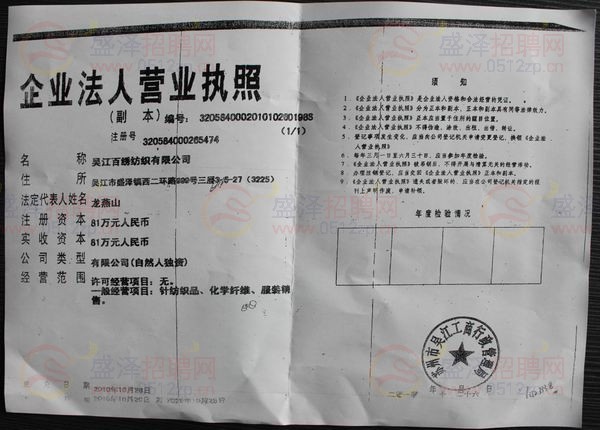 企业法人营业执照
(副 本) 编号: 320584000201010260198S
(1/1)
注册号 320584000265474
名 称 吴江百绣纺织有限公司
住 所 吴江市盛泽镇西二环路 号三层3-5-27 (3225)
法定代表人姓名 龙燕山
注 册 资 本 81万元人民币
实 收 资 本 81万元人民币
公 司 类 型 有限公司(自然人独资)
经 营 范 围 许可经营项目: 无。
一般经营项目: 针纺织品、化学纤维、服装销
售。
成 立 日 期 2010年10月26日
须 知
1. 《企业法人营业执照》是企业法人资格和合法经营的凭证。
2. 《企业法人营业执照》分为正本和副本, 正本和副本具有同等法律效力。
3. 《企业法人营业执照》正本应当置于住所的醒目位置。
4. 《企业法人营业执照》不得伪造、涂改、出租、出借、转让。
5. 登记事项发生变化, 应当向公司登记机关申请变更登记, 换领《企业法人营业执照》。
6. 每年三月一日至六月三十日, 应当参加年度检验。
7. 《企业法人营业执照》被吊销后, 不得开展与清算无关的经营活动。
8. 办理注销登记, 应当交回《企业法人营业执照》正本和副本。
9. 《企业法人营业执照》遗失或者毁坏的, 应当在公司登记机关指定的报
刊上声明作废, 申请补领。
年度检验情况
苏州市吴江工商行政管理局
盛泽招聘网
www.0512zp.cn